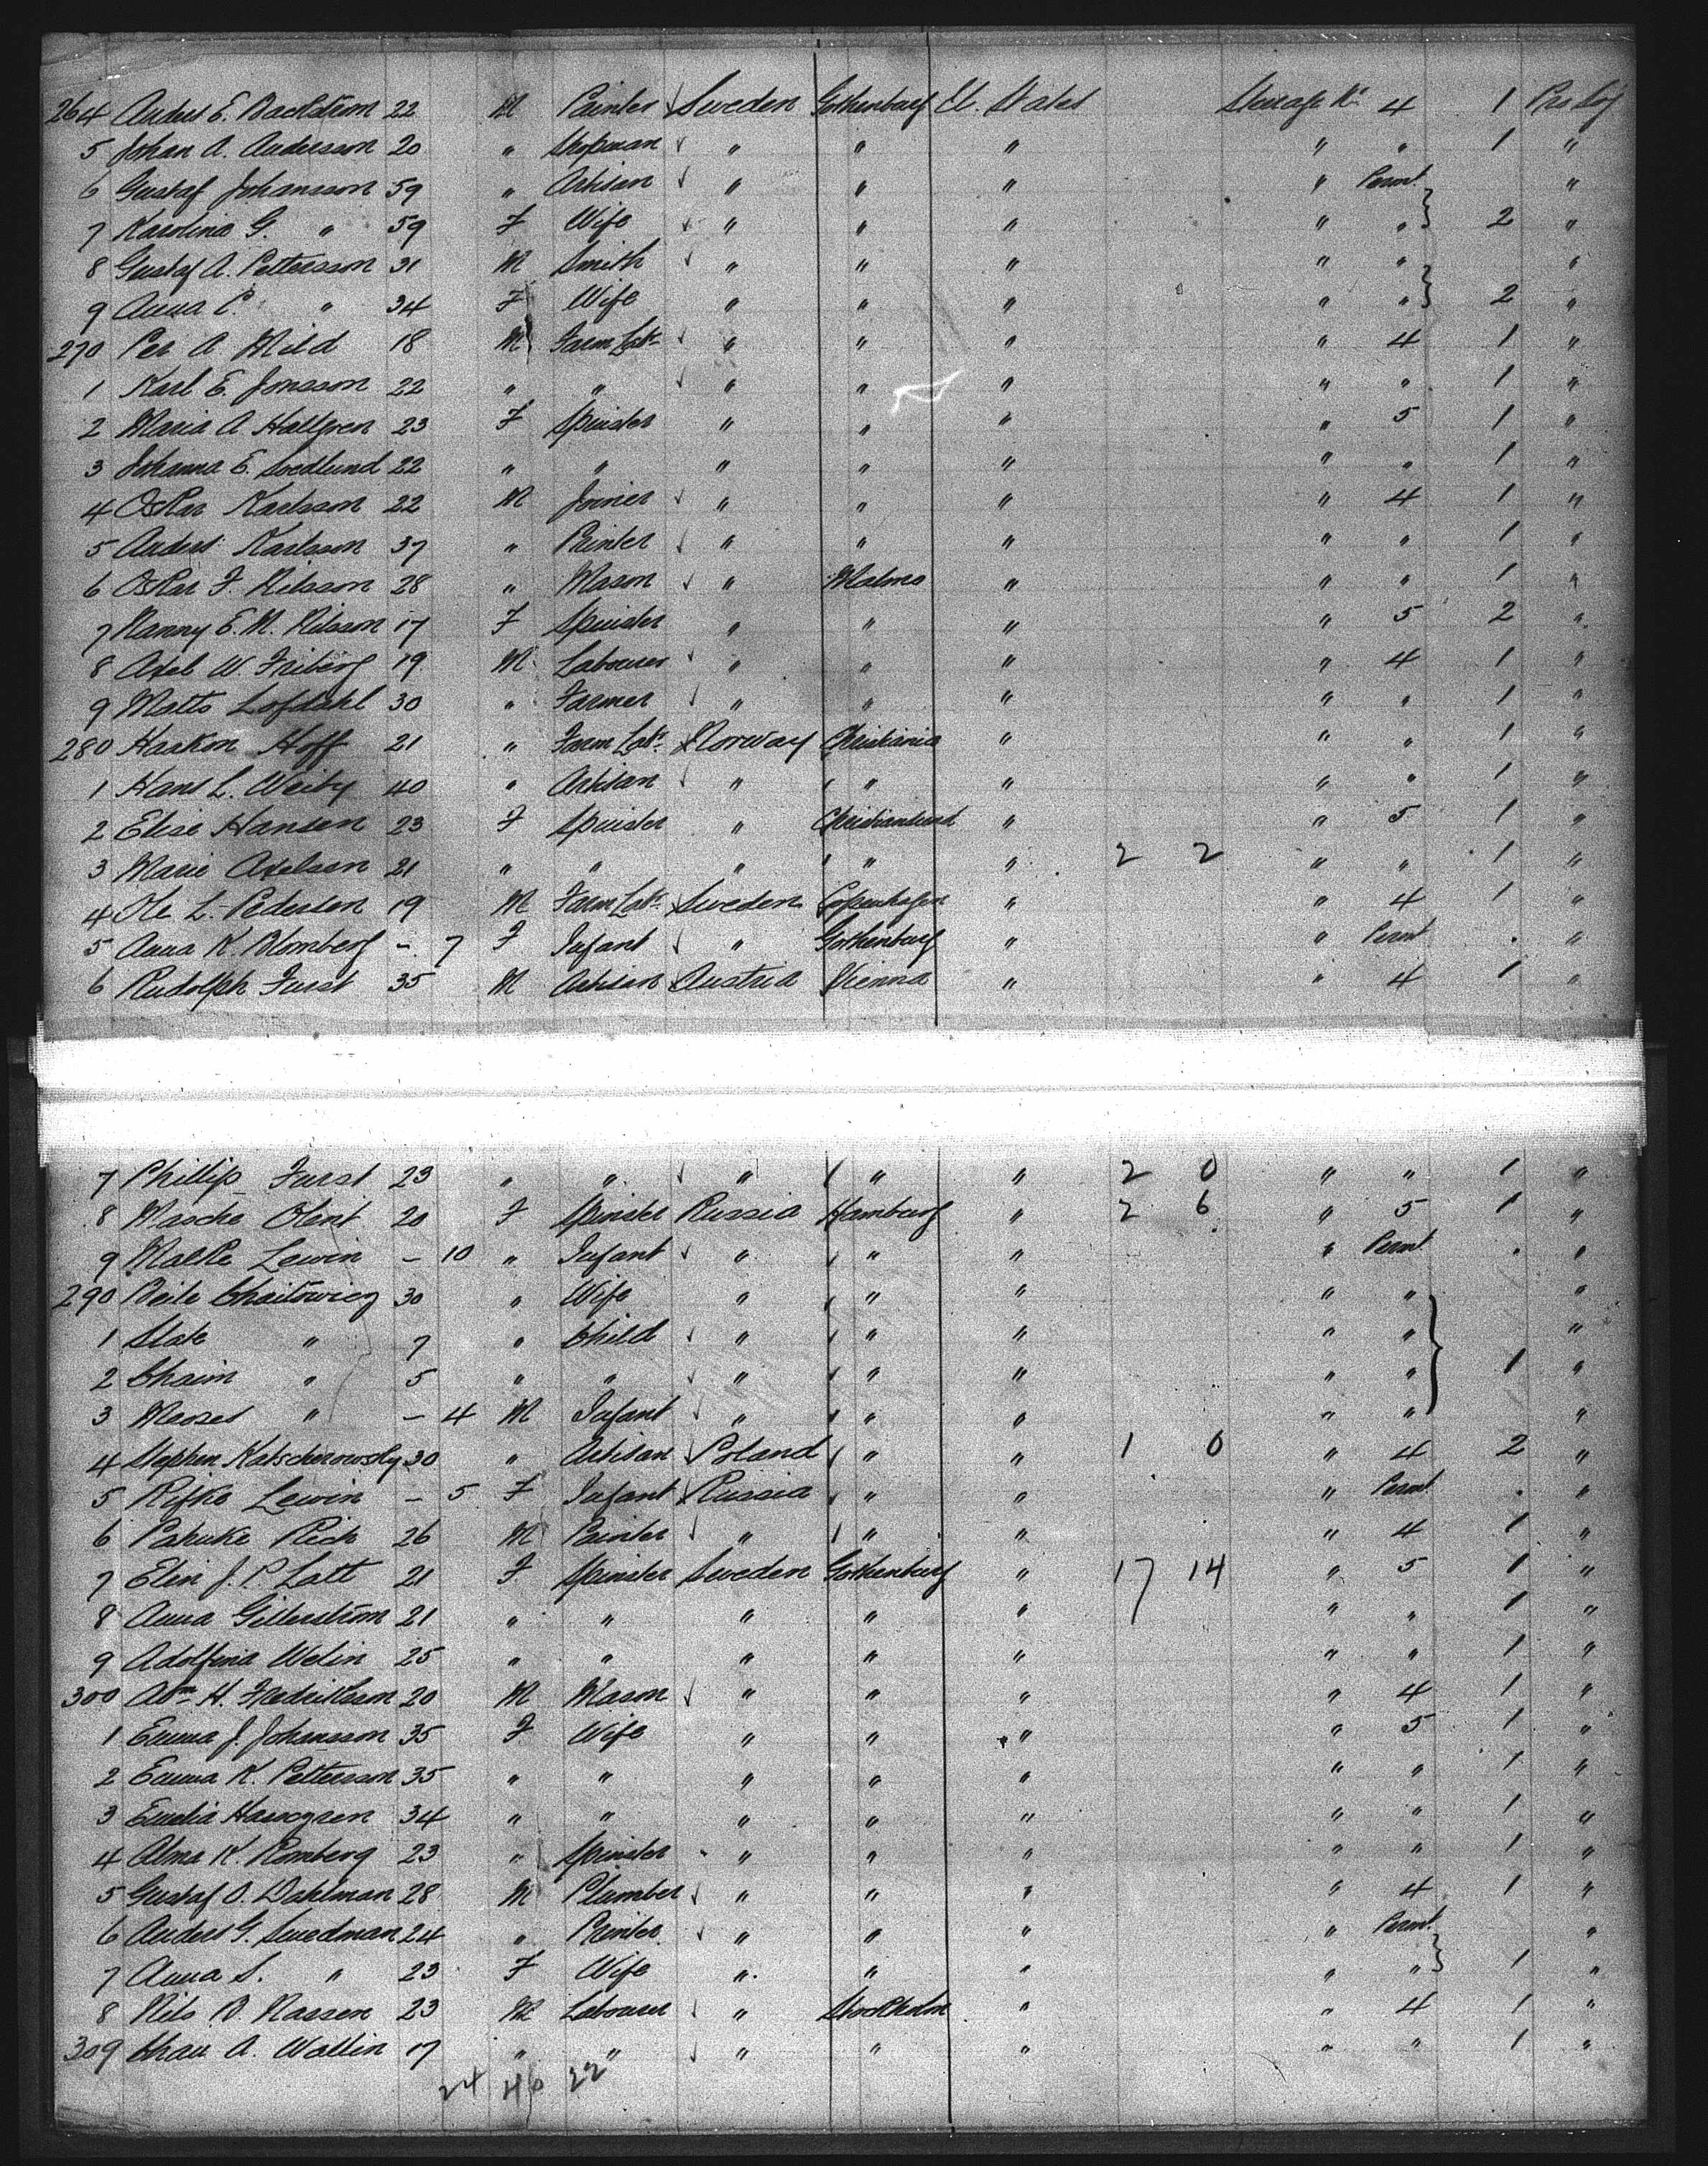 264 Anders E. Backström 22 M Painter Sweden Gothenburg U. States Steerage No 4 1 Pro Log
5 Johan A. Andersson 20 " Shopman " " " " " 1 "
6 Gustaf Johansson 59 " Artisan " " " " Permt "
7 Karolina G. " 59 F Wife " " " " " 2 "
8 Gustaf A. Pettersson 31 M Smith " " " " " "
9 Anna C. " 34 F Wife " " " " " 2 "
270 Per A Mild 18 M Farm Labr " " " " 4 1 "
1 Karl E. Jonsson 22 " " " " " " " 1 "
2 Maria A. Hallgren 23 F Spinster " " " " 5 1 "
3 Johanna E. Soedlund 22 " " " " " " " 1 "
4 Oskar Karlsson 22 M Joiner " " " " 4 1 "
5 Anders Karlsson 37 " Printer " " " " " 1 "
6 Oskar F. Nilsson 28 " Mason " Malmo " " " 1 "
7 Nanny E. M. Nilsson 17 F Spinster " " " " 5 2 "
8 Axel W. Friberg 19 M Labourer " " " " 4 1 "
9 Matts Lofdahl 30 " Farmer " " " " " 1 "
280 Haakon Hoff 21 " Farm Labr Norway Christiania " " " 1 "
1 Hans L. Weiby 40 " Artisan " " " " " 1 "
2 Elise Hansen 23 F Spinster " Christiansand " " 5 1 "
3 Marie Axelsen 21 " " " " " 2 2 " " 1 "
4 Ole L. Pedersen 19 M Farm Labr Sweden Copenhagen " " 4 1 "
5 Anna K. Blomberg - 7 F Infant " Gothenburg " " Permt . "
6 Rudolph Furst 35 M Artisan Austria Vienna " " 4 1 "
7 Phillip Furst 23 " " " " " 2 0 " " 1 "
8 Masche Olent 20 F Spinster Russia Hamburg " 2 6 " 5 1 "
9 Malke Lewin - 10 " Infant " " " " Permt . "
290 Beile Chaitowicz 30 " Wife " " " " " "
1 Slate " 7 " Child " " " " " "
2 Chaim " 5 " " " " " " " 1 "
3 Moses " - 4 M Infant " " " " " "
4 Stephen Katscherowsky 30 " Artisan Poland " " 1 0 " 4 2 "
5 Rifke Lewin - 5 F Infant Russia " " " Permt . "
6 Pahuke Rich 26 M Painter " " " " 4 1 "
7 Elin J. P. Latt 21 F Spinster Sweden Gothenburg " 17 14 " 5 1 "
8 Anna Gillerström 21 " " " " " " " 1 "
9 Adolfina Welin 25 " " " " " " " 1 "
300 Abm H. Fredriksson 20 M Mason " " " " 4 1 "
1 Emma J. Johansson 35 F Wife " " " " 5 1 "
2 Emma K. Pettersson 35 " " " " " " " 1 "
3 Emelia 34 " " " " " " " 1 "
4 Alma K. Romberg 23 " Spinster " " " " " 1 "
5 Gustaf O. Dahlman 28 M Plumber " " " " 4 1 "
6 Anders G. Swedman 24 " Printer " " " " Permt "
7 Anna S. " 23 F Wife " " " " " 1 "
8 Nils B. Nassen 23 M Labourer " Stockholm " " 4 1 "
309 Chas A. Wallin 17 " " " " " " " 1 "
24 40 22